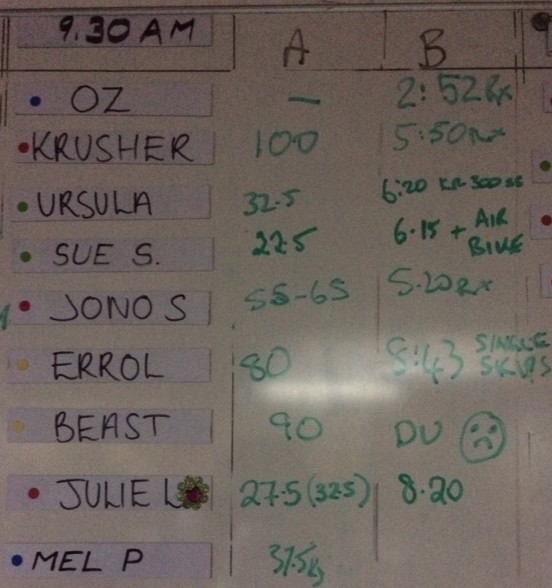 9.30 AM A B
OZ — 2:52 Rx
KRUSHER 100 5:50 Rx
URSULA 32.5 6:20 KR 300 SS
SUE S. 22.5 6.15 + AIR BIKE
JONO S 55-65 5.20 Rx
ERROL 80 8:43 SINGLE SKIPS
BEAST 90 DU
JULIE L 27.5 (32.5) 8.20
MEL P 37.5kg